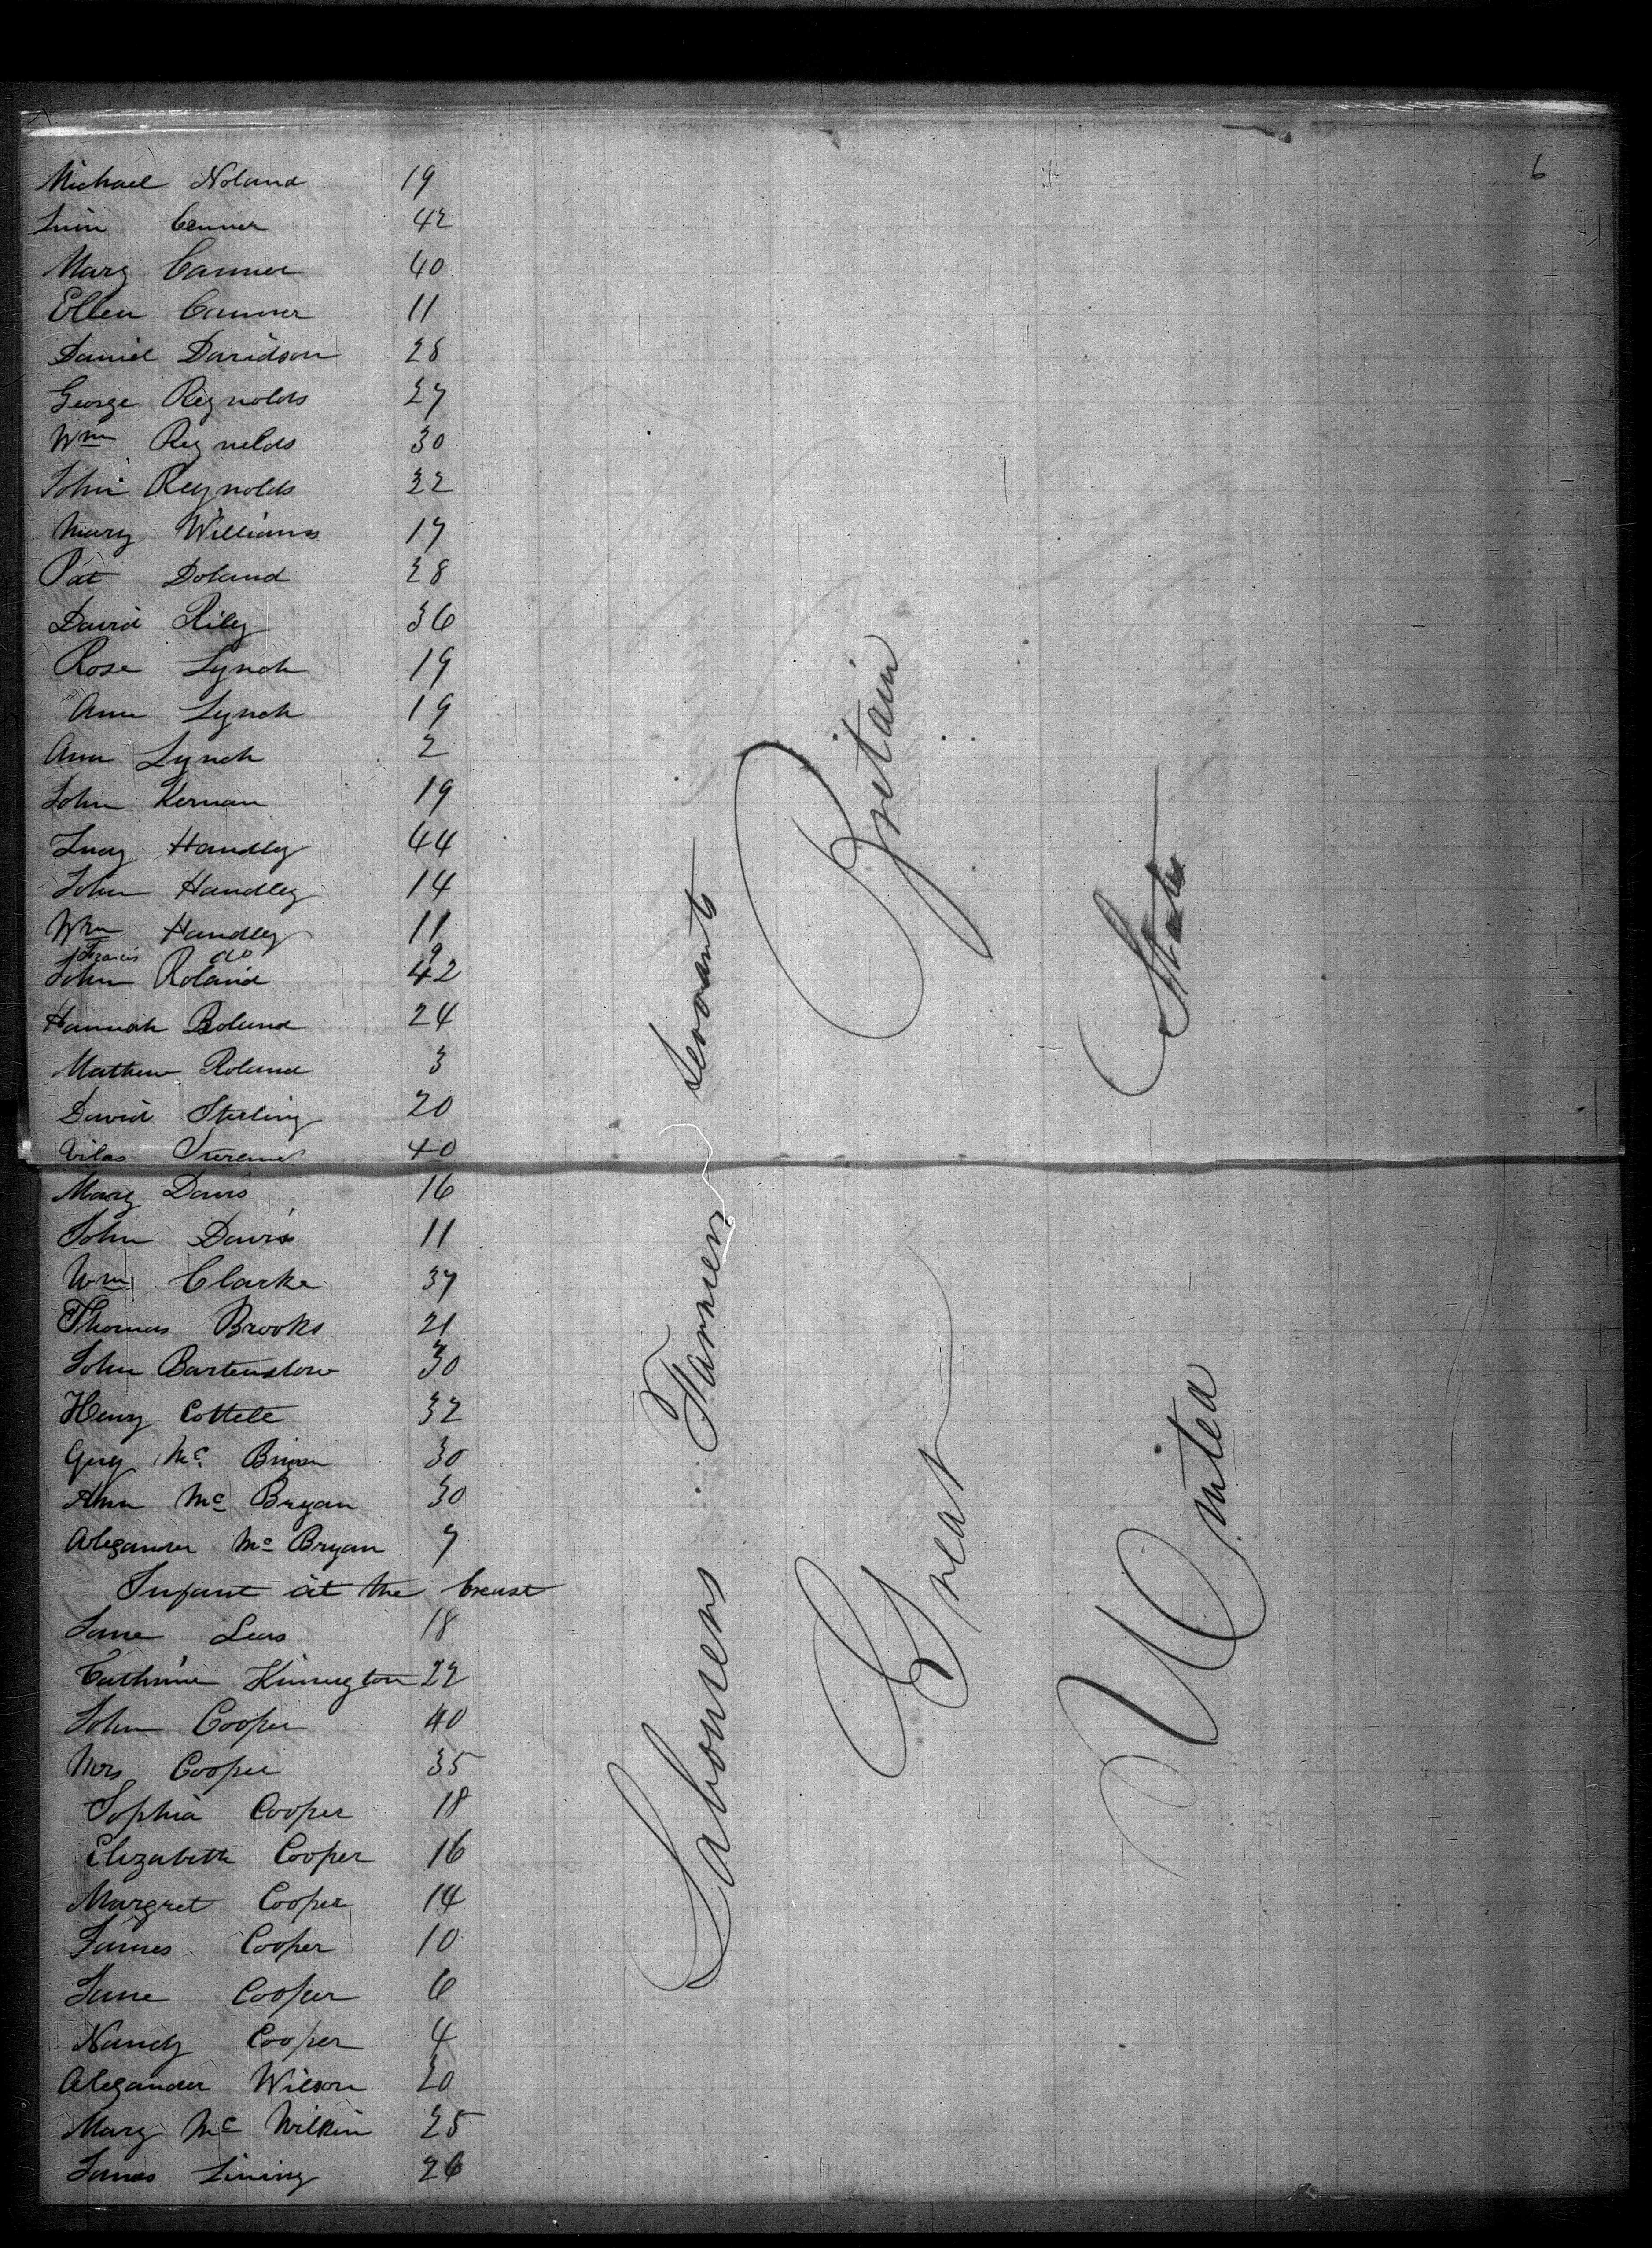 6
Michael Noland 19
Conner 42
Mary Conner 40
Ellen Conner 11
Daniel Davidson 28
George Reynolds 27
Wm Reynolds 30
John Reynolds 32
Mary Williams 17
Pat Doland 28
David Riley 36
Rose Lynch 19
Ann Lynch 19
Ann Lynch 2
John Kernan 19
Lucy Handley 44
John Handley 14
Wm Handley 11
Francis do 9
John Roland 42
Hannah Roland 24
Mathew Roland 3
David Sterling 20
40
Mary Davis 16
John Davis 11
Wm Clarke 37
Thomas Brooks 21
John Bartenslow 30
Henry Cottele 32
Mc 30
Ann Mc Bryan 30
Alexander Mc Bryan 7
Infant at the breast
Jane Lees 18
Cathrine Kinnington 22
John Cooper 40
Mrs Cooper 35
Sophia Cooper 18
Elizabeth Cooper 16
Margret Cooper 14
James Cooper 10
Jane Cooper 6
Nancy Cooper 4
Alexander Wilson 20
Mary Mc Wilkin 25
James Lining 26
Labourers Farmers Servants
Great Britain
United States